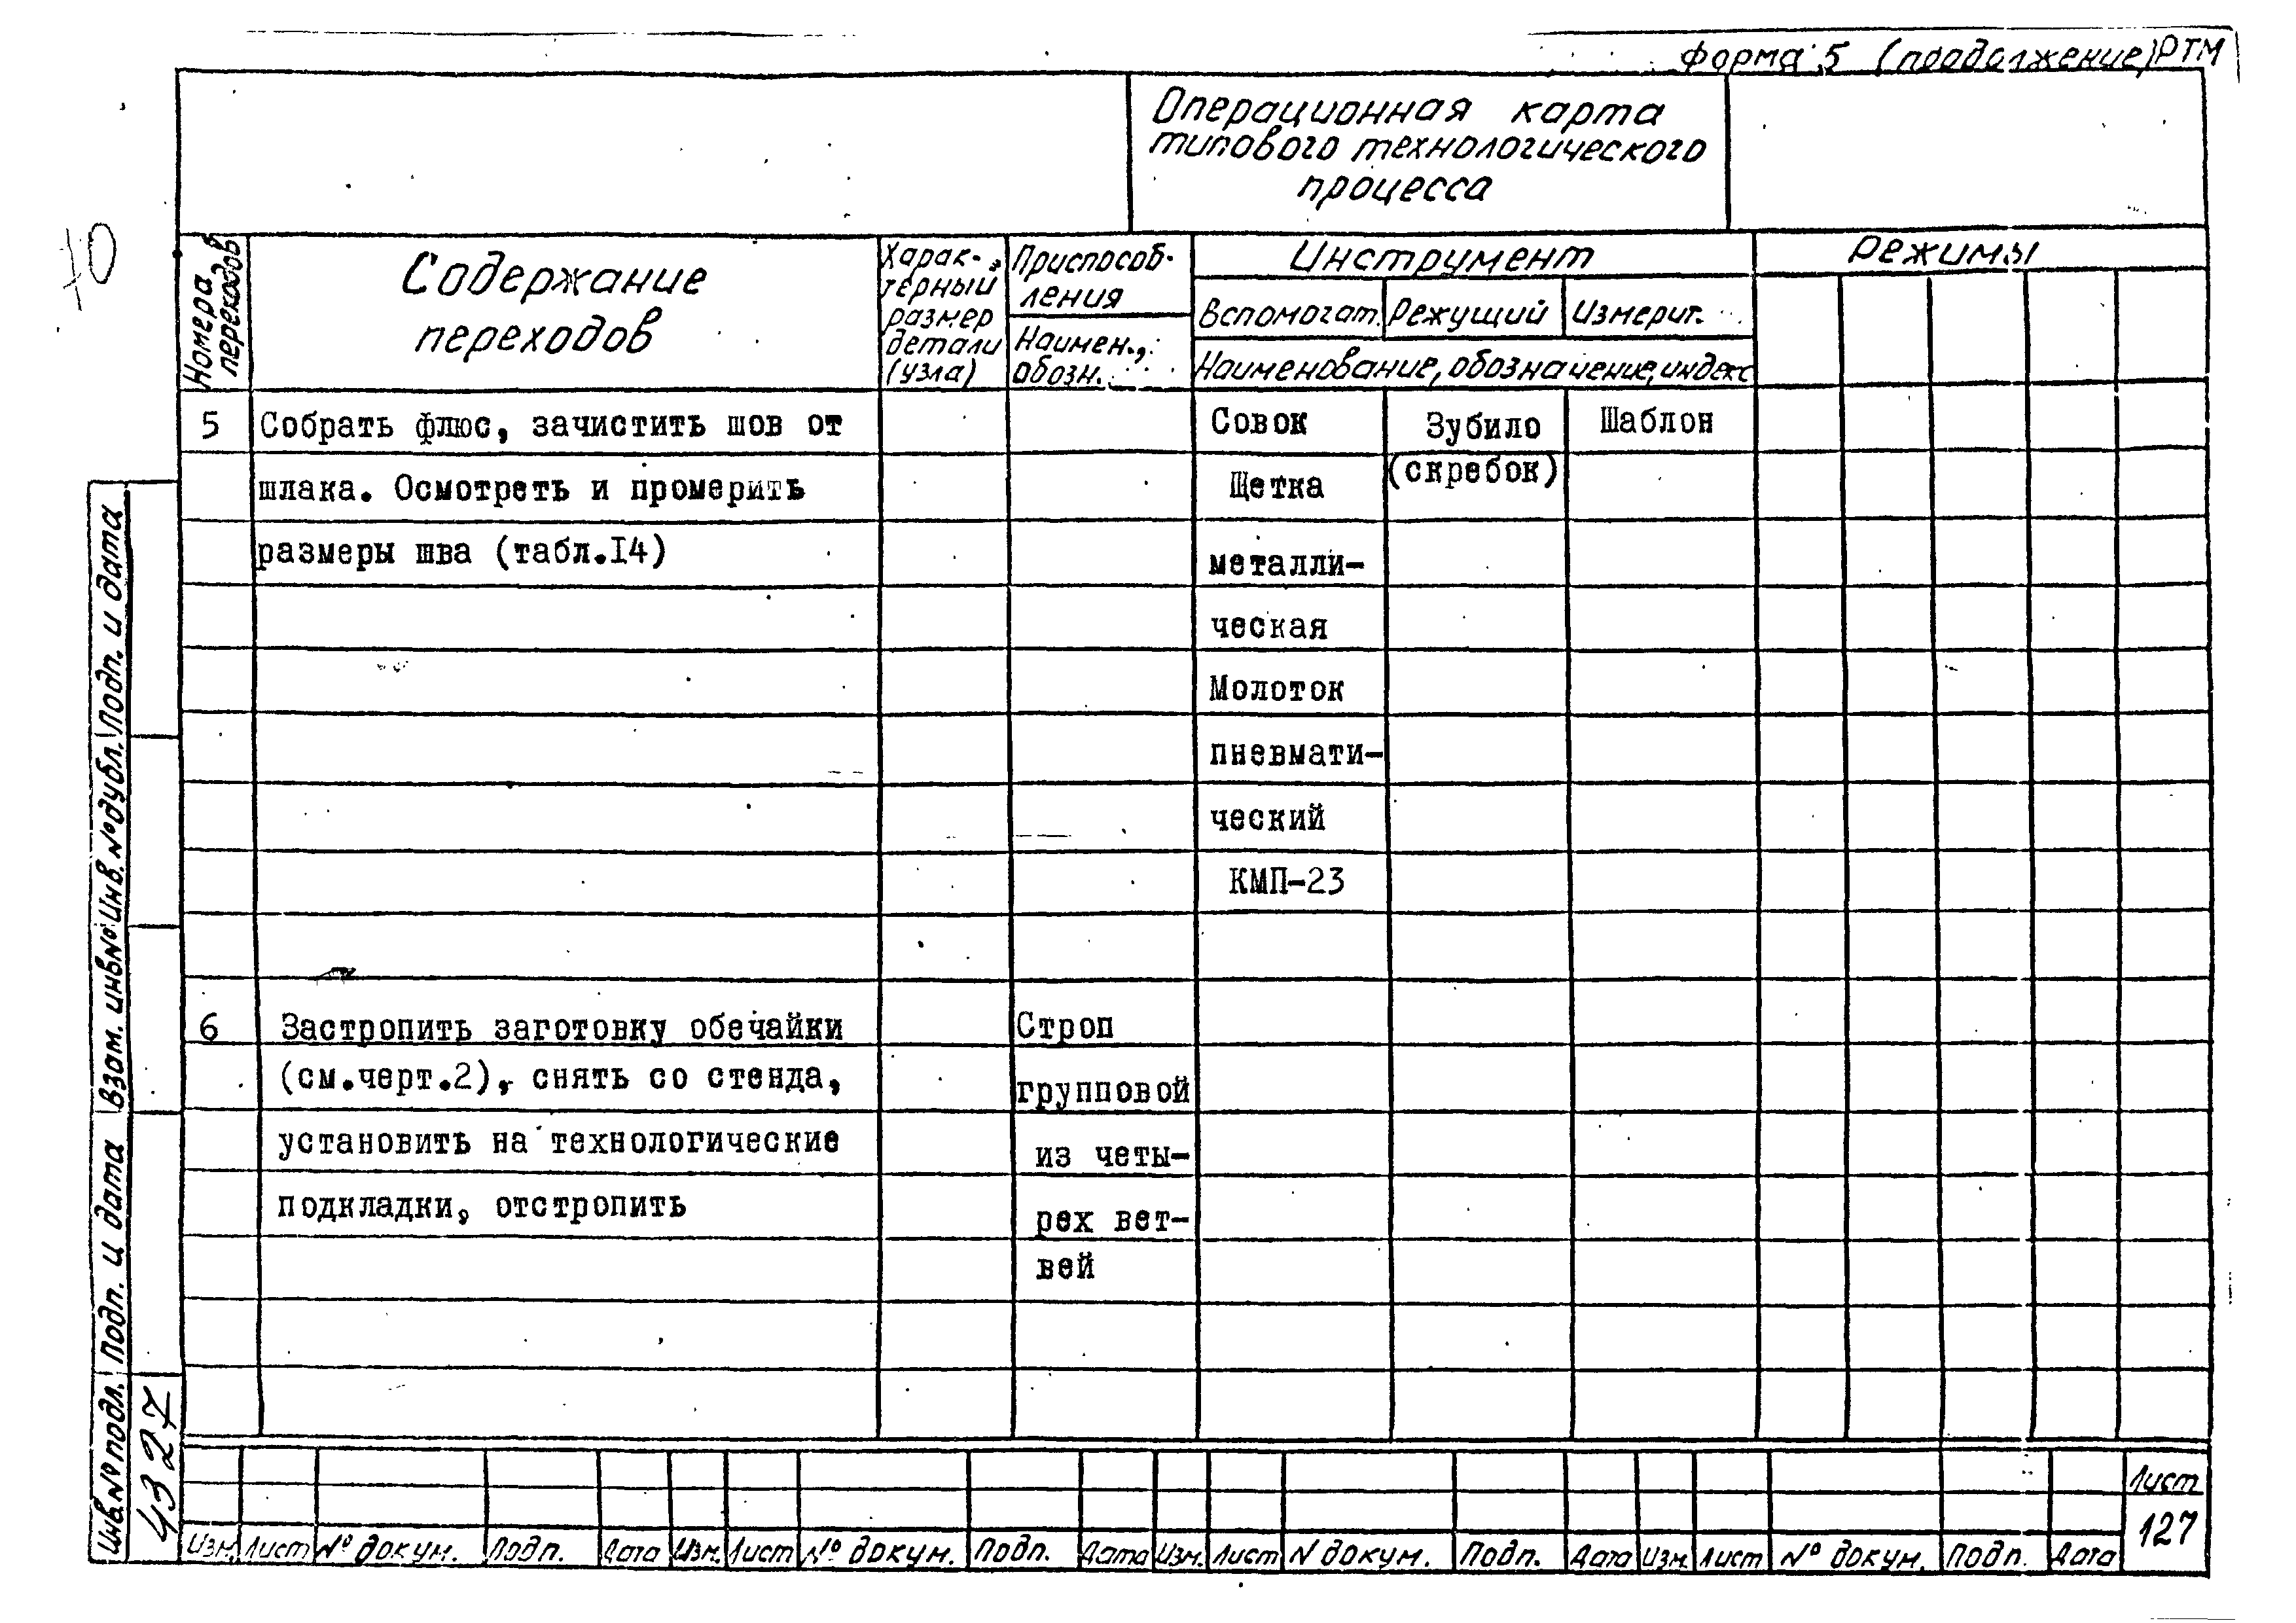 форма 5 (продолжение) РТМ
Операционная карта
типового технологического
процесса
Номера
переходов
Содержание
переходов
Харак-
терный
размер
детали
(узла)
Приспособ-
ления
Наимен.,
обозн.
Инструмент
Вспомогат. Режущий Измерит.
Наименование, обозначение, индекс
Режимы
5 Собрать флюс, зачистить шов от Совок Зубило Шаблон
шлака. Осмотреть и промерить Щетка (скребок)
размеры шва (табл.I4) металли-
ческая
Молоток
пневмати-
ческий
КМП-23
6 Застропить заготовку обечайки Строп
(см.черт.2), снять со стенда, групповой
установить на технологические из четы-
подкладки, отстропить рех вет-
вей
Инв.№ подл. Подп. и дата Взам. инв№ Инв.№ дубл. Подп. и дата
4327
70
Изм. Лист № докум. Подп. Дата Изм. Лист № докум. Подп. Дата Изм. Лист N докум. Подп. Дата Изм. Лист № докум. Подп. Дата
Лист
127